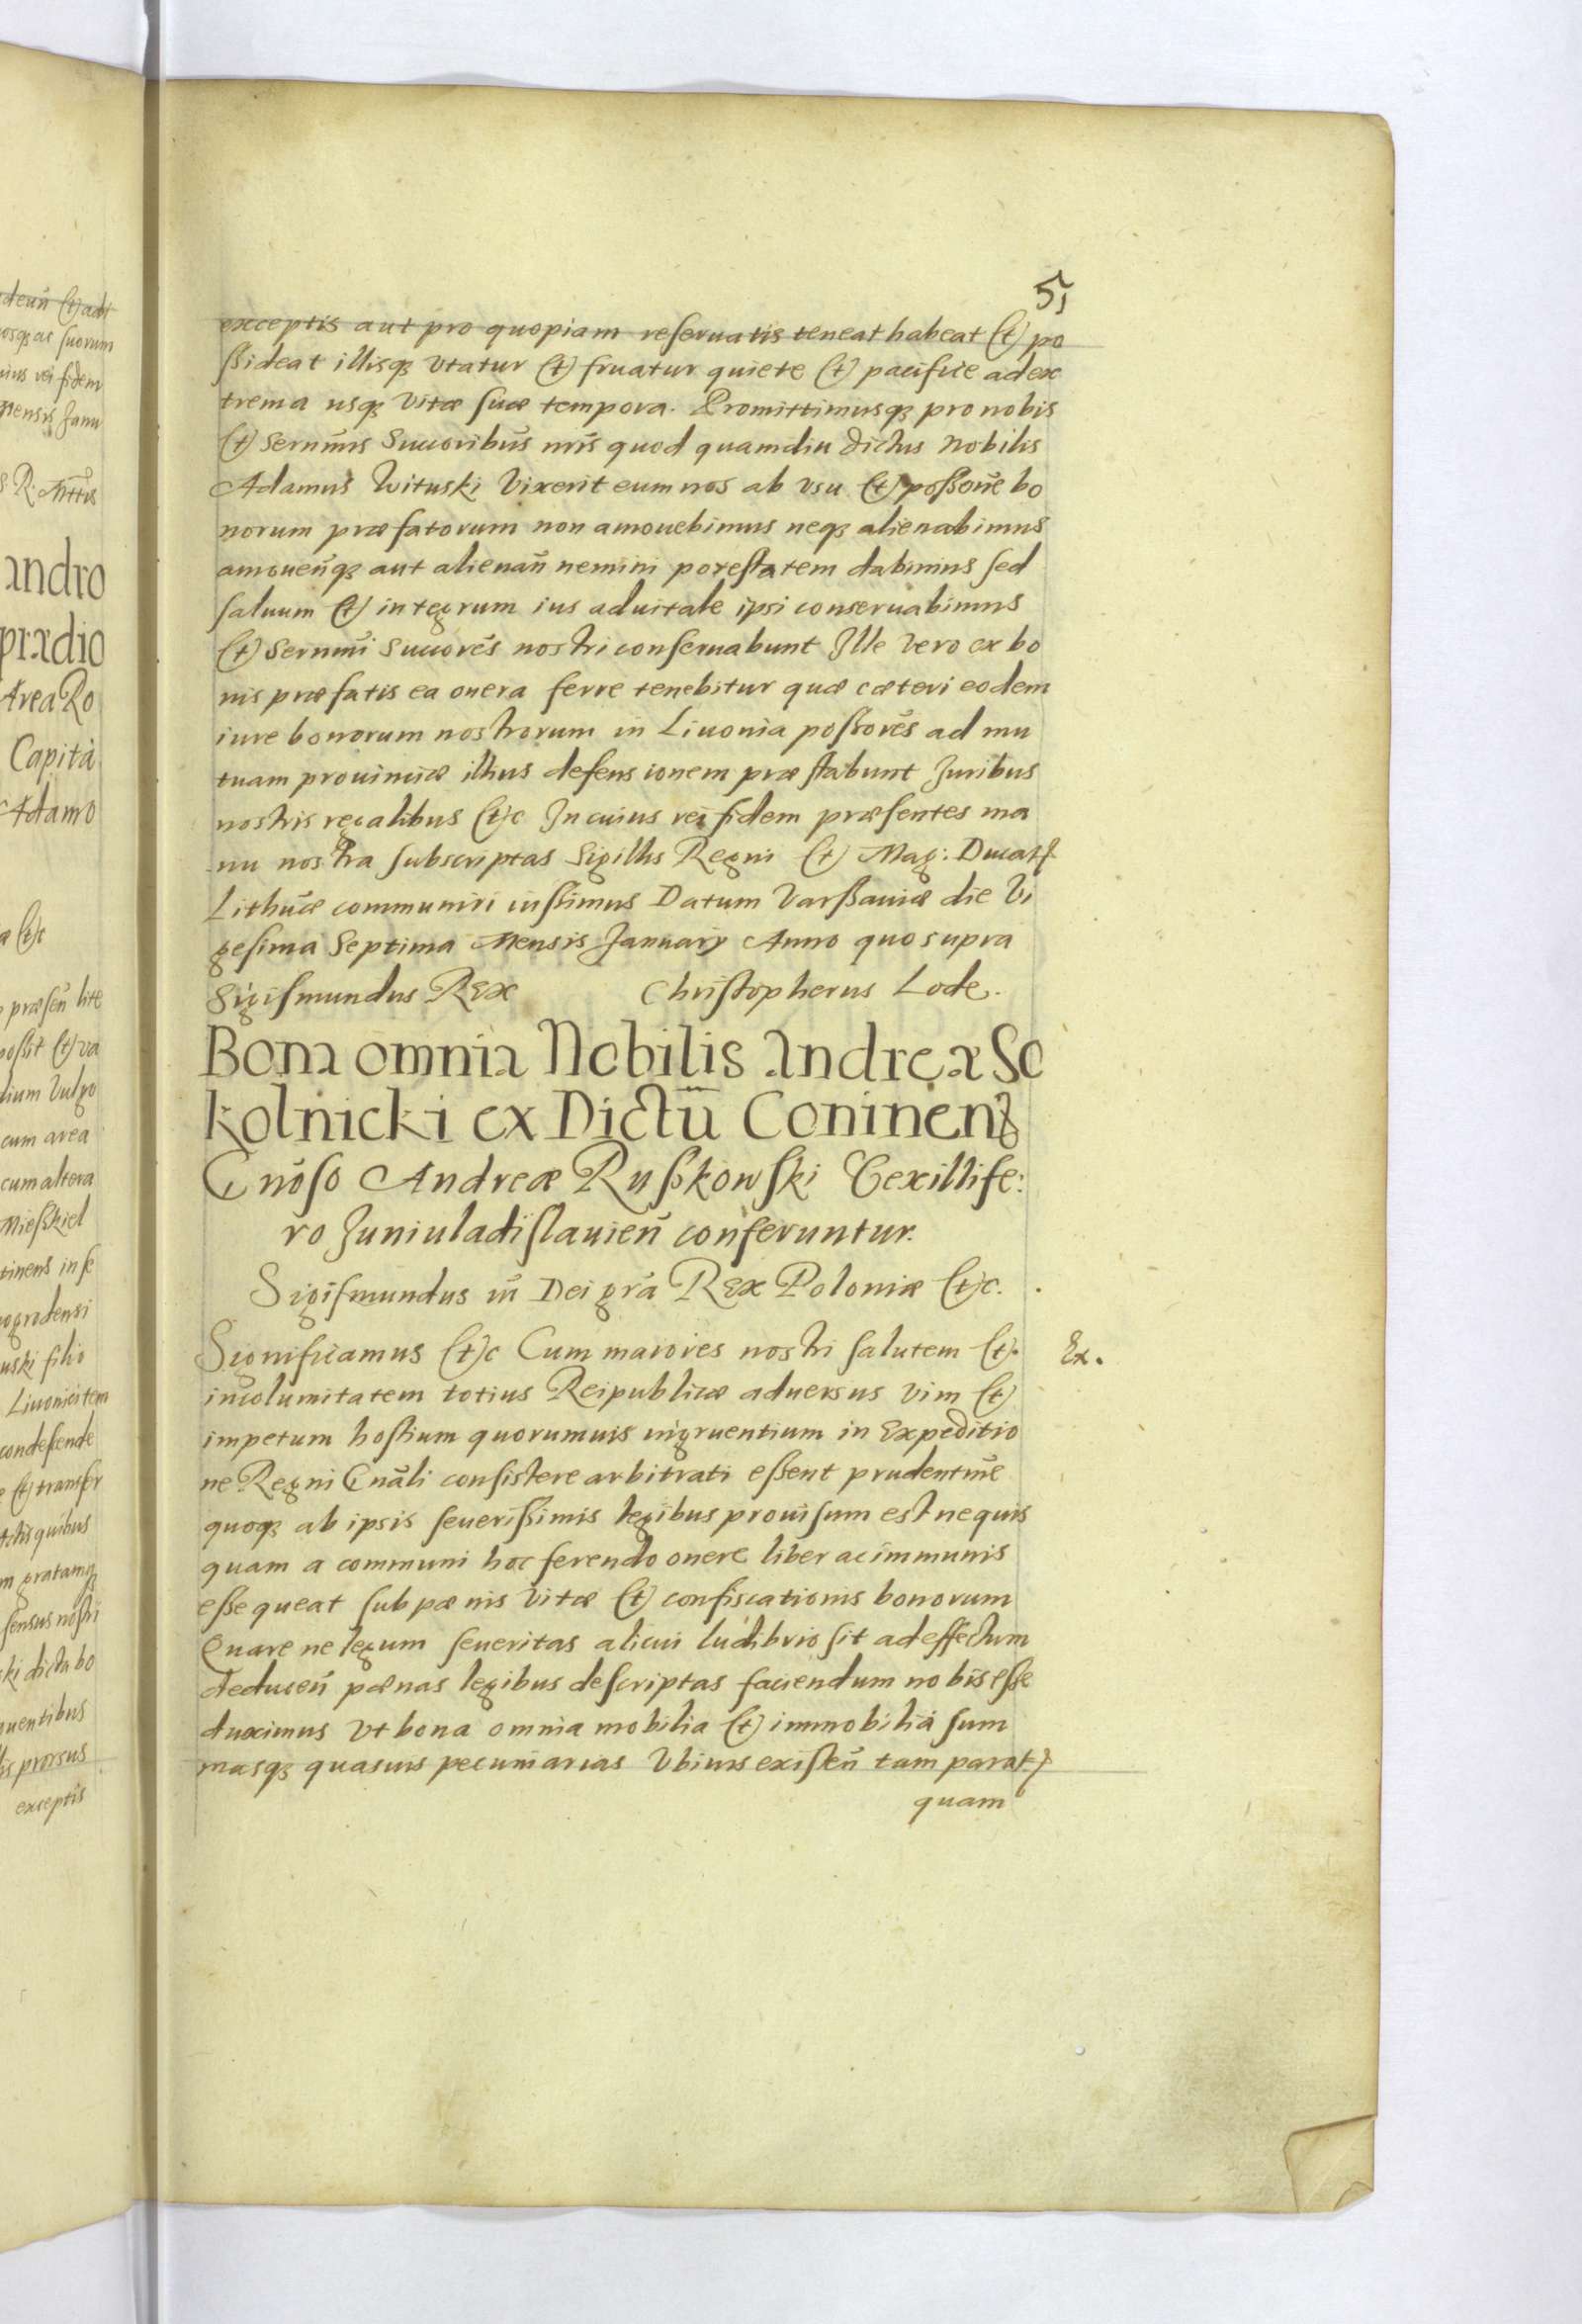 deuñ (et) adt
osq3 ac suorum
uius rei fidem
mensis Janu
S R: Mttis
andro
prædio
Area Ro
Capita
Adamo
a (et)c
præseñ lite
possit (et) va
dium vulgo
cum area
cum altera
Mieskiel
tinens in se
uski filio
Liuonici tem
condescende
(et) transfer
Actis quibus
m gratamq3
sensus nostri
ki dicta bo
quentibus
is prorsus
exceptis
51
exceptis aut pro quopiam reseruatis teneat habeat (et) po
ssideat illisq3 vtatur (et) fruatur quiete (et) pacifice ad ex
trema usq3 vitæ suæ tempora. Promittimusq3 pro nobis
(et) Sernm̃is Succoribus̃ nr̃is quod quamdiu dictus Nobilis
Adamus Wituski vixerit eum nos ab vsu (et) possoñe bo
norum præfatorum non amouebimus neq3 alienabimus
amoueñq3 aut alienañ nemini potestatem dabimus sed
saluum (et) integrum ius aduitale ipsi conseruabimus
(et) Sernm̃i Succores̃ nostri conseruabunt Ille vero ex bo
nis præfatis ea onera ferre tenebitur quæ cæteri eodem
iure bonorum nostrorum in Liuonia possores̃ ad mu
tuam prouinciæ illius defensionem præstabunt Juribus
nostris regalibus (et)c In cuius rei fidem præsentes ma
nu nostra subscriptas Sigillis Regni (et) Mag: Ducatꝭ
Lithuæ̃ communiri iussimus Datum Varssauiæ die Vi
gesima Septima Mensis January Anno quo supra
Sigismundus REx Christopherus Lode.
Bona omnia Nobilis Andreæ So
kolnicki ex Dictũ Coninenꝭ
Gnõso Andreæ Russkowski Vexillife:
ro Juniuladislauieñ conferuntur.
Sigismundus iii Dei grã REx Poloniæ (et)c.
Significamus (et)c Cum maiores nostri salutem (et) Ex.
incolumitatem totius Reipublicæ aduersus vim (et)
impetum hostium quorumuis ingruentium in Expeditio
ne Regni Gnãli consistere arbitrati essent prudentiñe
quoq3 ab ipsis seuerissimis legibus prouisum est ne quis
quam a communi hoc ferendo onere liber ac immunis
esse queat sub pænis vitæ (et) confiscationis bonorum
Quare ne legum seueritas alicui ludibrio sit ad effectum
deduceñ pænas legibus descriptas faciendum nobis esse
duximus vt bona omnia mobilia (et) immobilia sum
masq3 quasuis pecuniarias vbiuis existeñ tam paratꝭ
quam